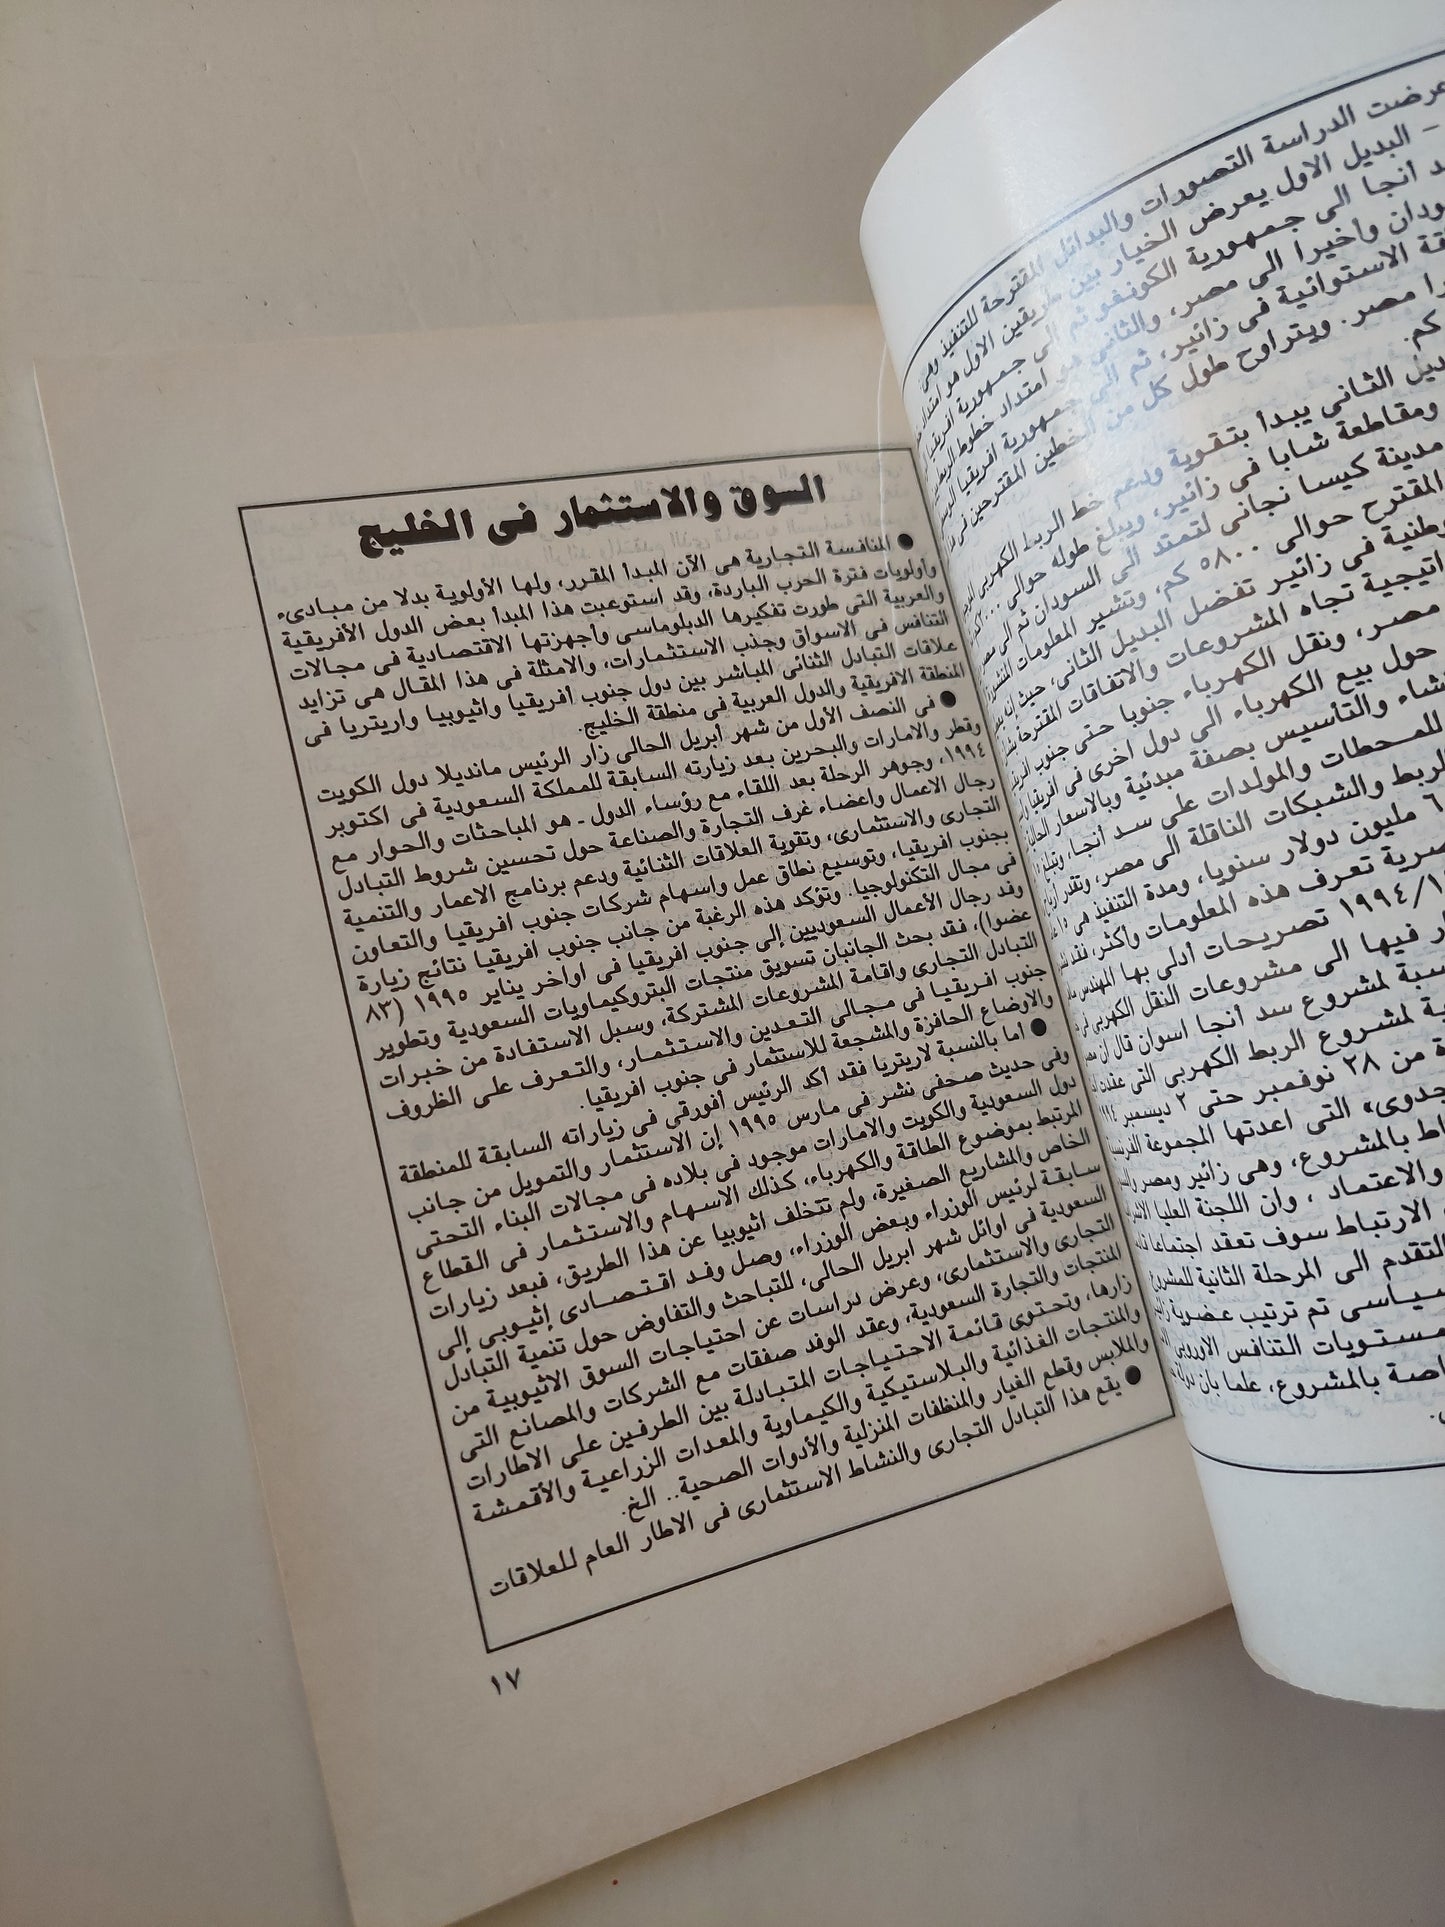 السوق والاستثمار فى الخليج
● المنافسة التجارية هى الآن المبدأ المقرر، ولها الأولوية بدلا من مبادىء
وأولويات فترة الحرب الباردة، وقد استوعبت هذا المبدأ بعض الدول الأفريقية
والعربية التى طورت تفكيرها الدبلوماسى وأجهزتها الاقتصادية فى مجالات
التنافس فى الاسواق وجذب الاستثمارات، والامثلة فى هذا المقال هى تزايد
علاقات التبادل الثنائى المباشر بين دول جنوب أفريقيا واثيوبيا واريتريا فى
المنطقة الافريقية والدول العربية فى منطقة الخليج.
● فى النصف الأول من شهر أبريل الحالى زار الرئيس مانديلا دول الكويت
وقطر والامارات والبحرين بعد زيارته السابقة للمملكة السعودية فى اكتوبر
١٩٩٤، وجوهر الرحلة بعد اللقاء مع رؤساء الدول - هو المباحثات والحوار مع
رجال الاعمال واعضاء غرف التجارة والصناعة حول تحسين شروط التبادل
التجارى والاستثمارى، وتقوية العلاقات الثنائية ودعم برنامج الاعمار والتنمية
بجنوب افريقيا، وتوسيع نطاق عمل واسهام شركات جنوب افريقيا والتعاون
فى مجال التكنولوجيا. وتؤكد هذه الرغبة من جانب جنوب افريقيا نتائج زيارة
وفد رجال الأعمال السعوديين إلى جنوب افريقيا فى اواخر يناير ١٩٩٥ (٨٣
عضوا)، فقد بحث الجانبان تسويق منتجات البتروكيماويات السعودية وتطوير
التبادل التجارى واقامة المشروعات المشتركة، وسبل الاستفادة من خبرات
جنوب افريقيا فى مجالى التعدين والاستثمار، والتعرف على الظروف
والاوضاع الحافزة والمشجعة للاستثمار فى جنوب افريقيا.
● أما بالنسبة لاريتريا فقد أكد الرئيس أفورقى فى زياراته السابقة للمنطقة
وفى حديث صحفى نشر فى مارس ١٩٩٥ إن الاستثمار والتمويل من جانب
دول السعودية والكويت والامارات موجود فى بلاده فى مجالات البناء التحتى
المرتبط بموضوع الطاقة والكهرباء، كذلك الاسهام والاستثمار فى القطاع
الخاص والمشاريع الصغيرة، ولم تتخلف اثيوبيا عن هذا الطريق، فبعد زيارات
سابقة لرئيس الوزراء وبعض الوزراء، وصل وفد اقتصادى إثيوبى إلى
السعودية فى اوائل شهر ابريل الحالى، للتباحث والتفاوض حول تنمية التبادل
التجارى والاستثمارى، وعرض دراسات عن احتياجات السوق الاثيوبية من
المنتجات والتجارة السعودية، وعقد الوفد صفقات مع الشركات والمصانع التى
زارها، وتحتوى قائمة الاحتياجات المتبادلة بين الطرفين على الاطارات
والمنتجات الغذائية والبلاستيكية والكيماوية والمعدات الزراعية والأقمشة
والملابس وقطع الغيار والمنظفات المنزلية والأدوات الصحية.. الخ.
● يقع هذا التبادل التجارى والنشاط الاستثمارى فى الاطار العام للعلاقات
١٧
عرضت الدراسة التصورات والبدائل المقترحة للتنفيذ وهى
– البديل الاول يعرض الخيار بين طريقين الاول هو امتداد
أنجا الى جمهورية الكونغو ثم الى جمهورية افريقيا
وأخيرا الى مصر، والثانى هو امتداد خطوط الربط
الاستوائية فى زائير، ثم الى جمهورية افريقيا
مصر. ويتراوح طول كل من الخطين المقترحين
كم.
الثانى يبدأ بتقوية ودعم خط الربط الكهربى
ومقاطعة شابا فى زائير، ويبلغ طوله حوالى
مدينة كيسا نجانى لتمتد الى السودان ثم الى مصر
المقترح حوالى ٥٨٠٠ كم، وتشير المعلومات
فى زائير تفضل البديل الثانى، حيث
تجاه المشروعات والاتفاقات المقترحة
مصر، ونقل الكهرباء جنوبا حتى جنوب
حول بيع الكهرباء الى دول اخرى فى افريقيا
والتأسيس بصفة مبدئية وبالاسعار
للمحطات والمولدات على سد أنجا،
الربط والشبكات الناقلة الى مصر، وتقدر
مليون دولار سنويا، ومدة التنفيذ هى
تعرف هذه المعلومات وأكثر، فقد
تصريحات أدلى بها المهندس
فيها الى مشروعات النقل الكهربى
لمشروع سد أنجا اسوان قال
لمشروع الربط الكهربى التى
من ٢٨ نوفمبر حتى ٢ ديسمبر
التى اعدتها المجموعة
بالمشروع، وهى زائير ومصر
والاعتماد ، وان اللجنة العليا
الارتباط سوف تعقد اجتماعا
التقدم الى المرحلة الثانية للمشروع
تم ترتيب عضوية
التنافس الاوروبى
بالمشروع، علما بان